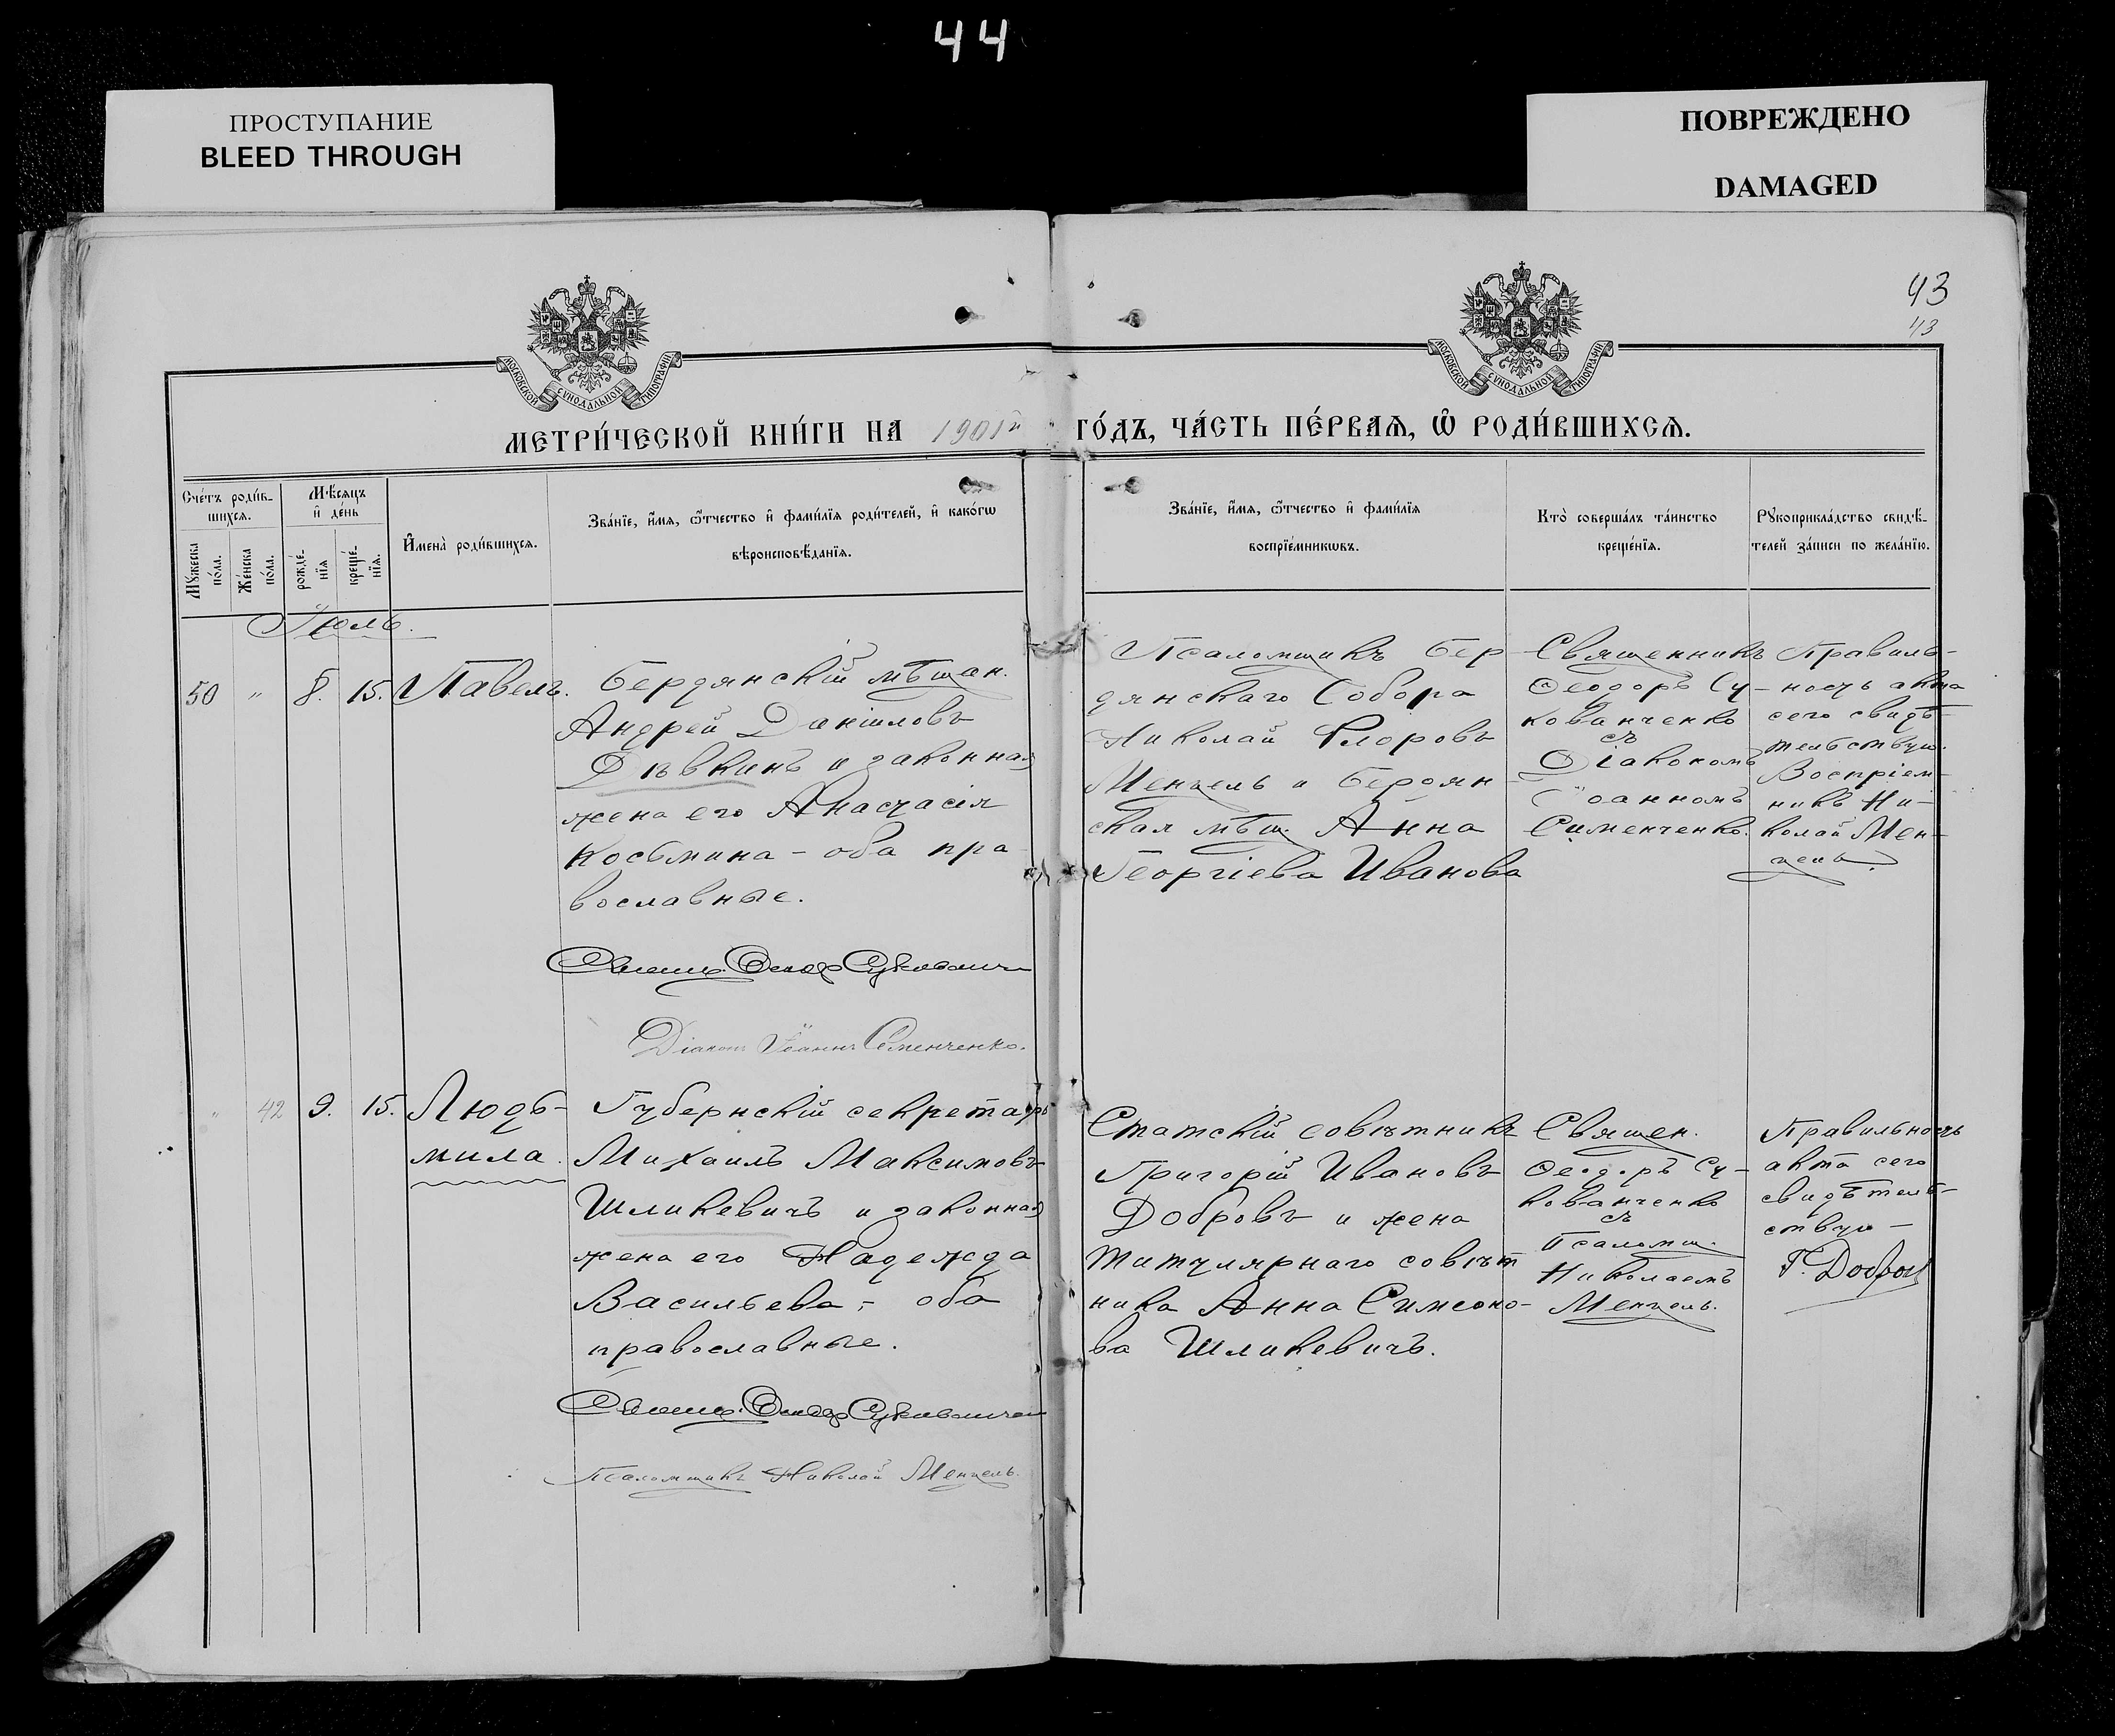 44
ПРОСТУПАНИЕ
BLEED THROUGH
ПОВРЕЖДЕНО
DAMAGED
43
43
МОСКОВСКОЙ СѴНОДАЛЬНОЙ ТИПОГРАФІИ
МОСКОВСКОЙ СѴНОДАЛЬНОЙ ТИПОГРАФІИ
МЕТРИ́ЧЕСКОЙ КНИ́ГИ НА 1901й ГО́ДЪ, ЧА́СТЬ ПЕ́РВАѦ, Ѡ҆ РОДИ́ВШИХСѦ.
Сче́тъ роди́в-
шихсѧ.
Мꙋ́жеска
по́ла.
Же́нска
по́ла.
Мѣ́сѧцъ
и҆ де́нь
рожде́-
нїѧ
креще́-
нїѧ.
И҆мена̀ роди́вшихсѧ.
Зва́нїе, и҆́мѧ, ѻ҆́тчество и҆ фами́лїѧ роди́телей, и҆ како́гѡ
вѣроисповѣ́данїѧ.
Зва́нїе, и҆́мѧ, ѻ҆́тчество и҆ фами́лїѧ
воспрїе́мникѡвъ.
Кто̀ соверша́лъ та́инство
креще́нїѧ.
Рꙋкоприкла́дство свидѣ́-
телей за́писи по жела́нїю.
Іюль.
50 " 8. 15. Павелъ.
Бердянскій мѣщан.
Андрей Даніиловъ
Дѣвкинъ и законная
жена его Анастасія
Косьмина - оба пра
вославные.
Псаломщикъ Бер
дянскаго Собора
Николай Флоровъ
Менцель и бердян
ская мѣщ. Анна
Георгіева Иванова
Священникъ
Ѳеодоръ Су-
кованченко
съ
Діакономъ
Іоанномъ
Сименченко.
Правиль-
ность акта
сего свидѣ-
тельствую.
Воспріем-
никъ Ни-
колай Мен-
цель
Діаконъ Іоаннъ Сименченко.
" 42 9. 15. Людь-
мила.
Губернскій секретарь
Михаилъ Максимовъ
Шликевичъ и законная
жена его Надежда
Васильева, - оба
православные.
Статскій совѣтникъ
Григорій Ивановъ
Добровъ и жена
титулярнаго совѣт
ника Анна Симеоно-
ва Шликевичъ.
Священ.
Ѳеодоръ Су-
кованченко
съ
Псаломщ.
Николаемъ
Менцель.
Правильность
акта сего
свидѣтель-
ствую -
Г. Добров
Псаломщикъ Николай Менцель.